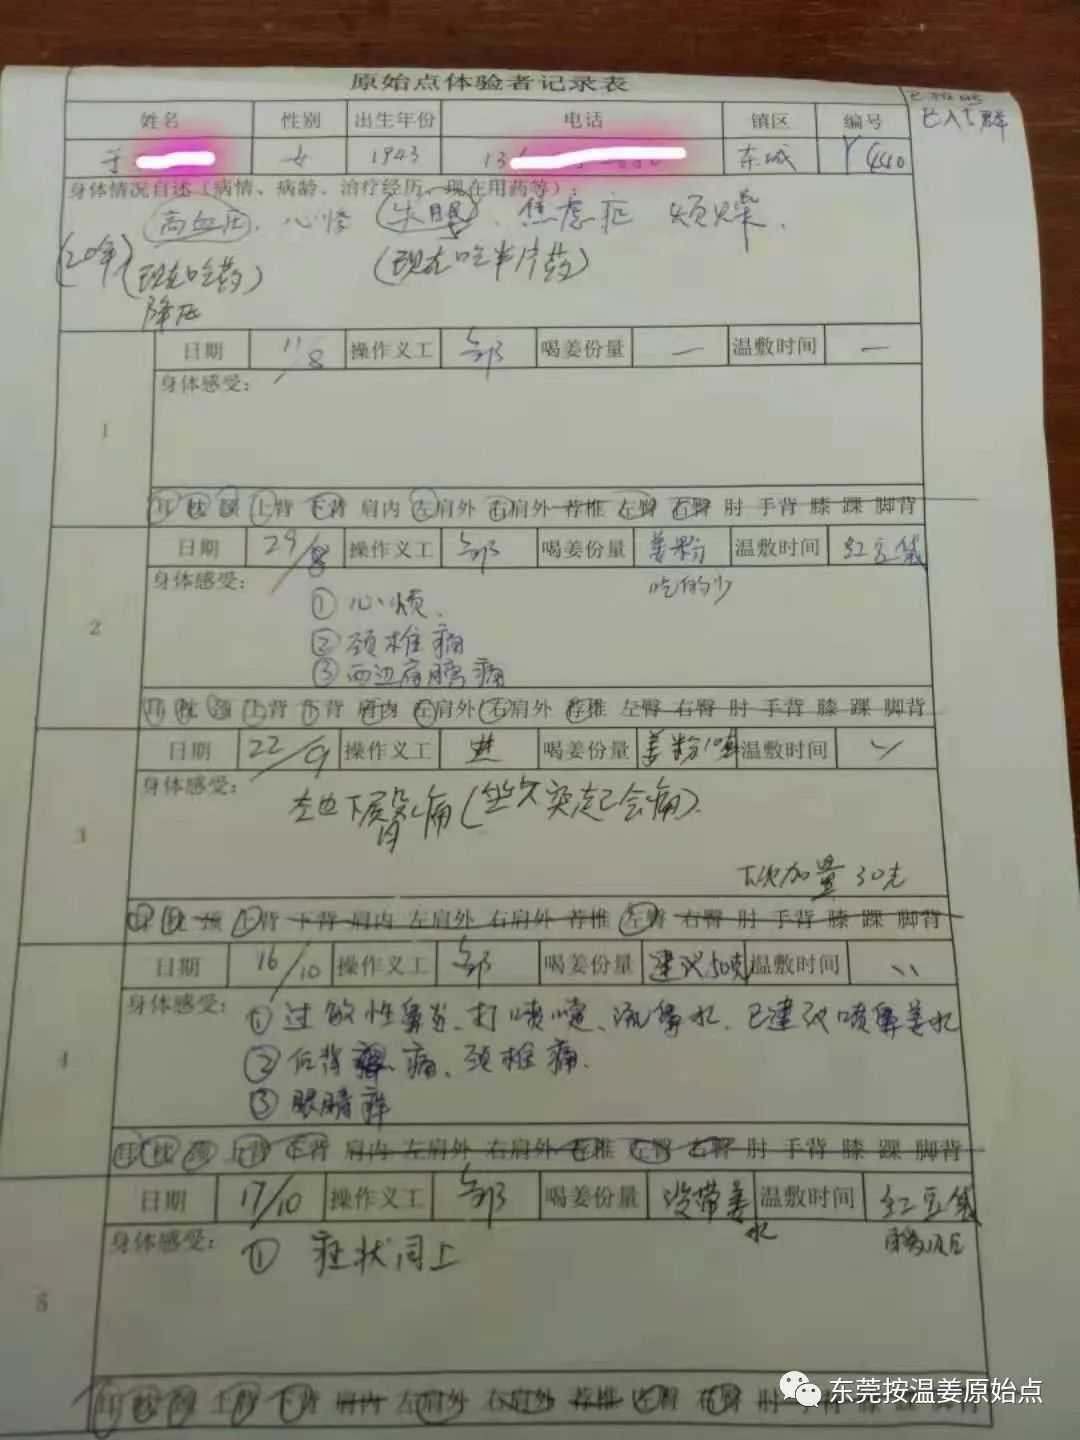 原始点体验者记录表
已入群
姓名 性别 出生年份 电话 镇区 编号
于 女 1943 13 东城 Y440
身体情况自述(病情、病龄、治疗经历、现在用药等):
高血压、心悸 失眠、焦虑症 烦燥、
(20年)(现在吃药) (现在吃半片药)
降压
1
日期 11/8 操作义工 邹 喝姜份量 一 温敷时间 一
身体感受:
耳 枕 颈 上背 下背 肩内 左肩外 右肩外 荐椎 左臀 右臀 肘 手背 膝 踝 脚背
2
日期 29/8 操作义工 邹 喝姜份量 姜粉 温敷时间 红豆袋
吃的少
身体感受:
① 心烦、
② 颈椎痛
③ 两边肩膀痛
耳 枕 颈 上背 下背 肩内 左肩外 右肩外 荐椎 左臀 右臀 肘 手背 膝 踝 脚背
3
日期 22/9 操作义工 喝姜份量 姜粉10 温敷时间
身体感受:
左边下臀痛(坐久突起会痛).
下次加量30克
耳 枕 颈 上背 下背 肩内 左肩外 右肩外 荐椎 左臀 右臀 肘 手背 膝 踝 脚背
4
日期 16/10 操作义工 邹 喝姜份量 建议50克 温敷时间
身体感受:
① 过敏性鼻炎、打喷嚏、流鼻水、已建议喷鼻姜水
② 后背 痛、颈椎痛.
③ 眼睛痒
耳 枕 颈 上背 下背 肩内 左肩外 右肩外 荐椎 左臀 右臀 肘 手背 膝 踝 脚背
5
日期 17/10 操作义工 邹 喝姜份量 没带姜水 温敷时间 红豆袋
身体感受:
① 症状同上
耳 枕 颈 上背 下背 肩内 左肩外 右肩外 荐椎 左臀 右臀 肘 手背 膝 踝 脚背
东莞按温姜原始点